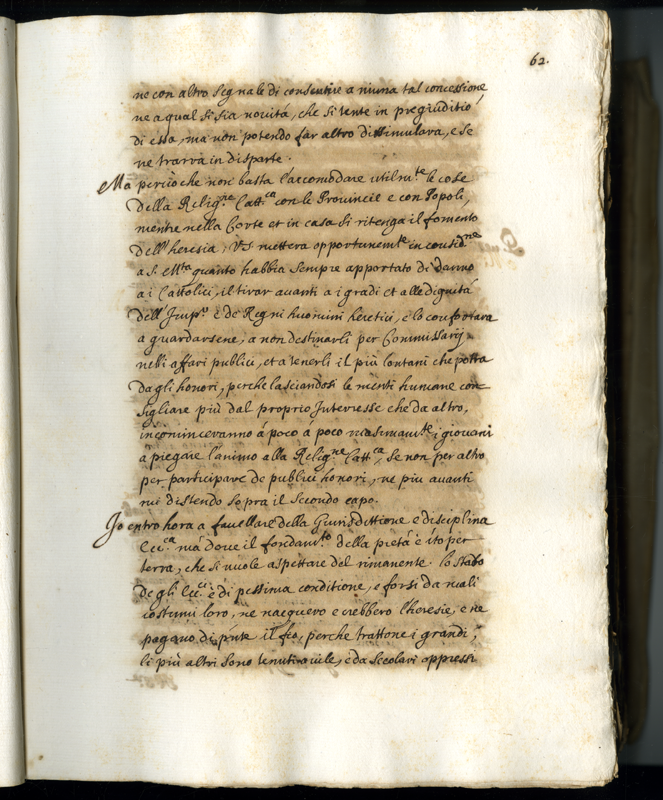 62.
ne con altro segnale di consentire a niuna tal concessione
ne a qual si sia novità, che si tente in pregiuditio
di essa, ma non potendo far altro dissimulara, e se
ne trarrà in disparte.
Ma perciò che non basta l'accomodare utilmte le cose
della Religne Cattca con le Provincie e con Popoli,
mentre nella Corte et in casa si ritenga il fomento
dell'heresia, VS metterà opportunemte in considne
a S. Mta quanto habbia sempre apportato di danno
a i Cattolici, il tirar avanti a i gradi et alle dignità
dell'Impo e de Regni huomini heretici, e lo confortara
a guardarsene, a non destinarli per Commissarij
nelli affari publici, et a tenerli il più lontani che potta
da gli honori, perche lasciandosi le menti humane con-
sigliare più dal proprio Interesse che da altro,
incominceranno á poco á poco massimamte i giovani
a piegare l'animo alla Religne Cattca, se non per altro
per participare de publici honori, ne piu avanti
mi distendo sopra il secondo capo.
Io entro hora a favellare della Giurisdittione e disciplina
Ecca ma dove il fondamto della pietà è ito per
terra, che si vuole aspettare del rimanente. lo stato
de gli Ecci è di pessima conditione, e forsi da mali
costumi loro, ne nacquero e crebbero l'heresie, e ne
pagano di pnte il fio, perche trattone i grandi,
li più altri sono tenuti a vile, e da secolari oppressi